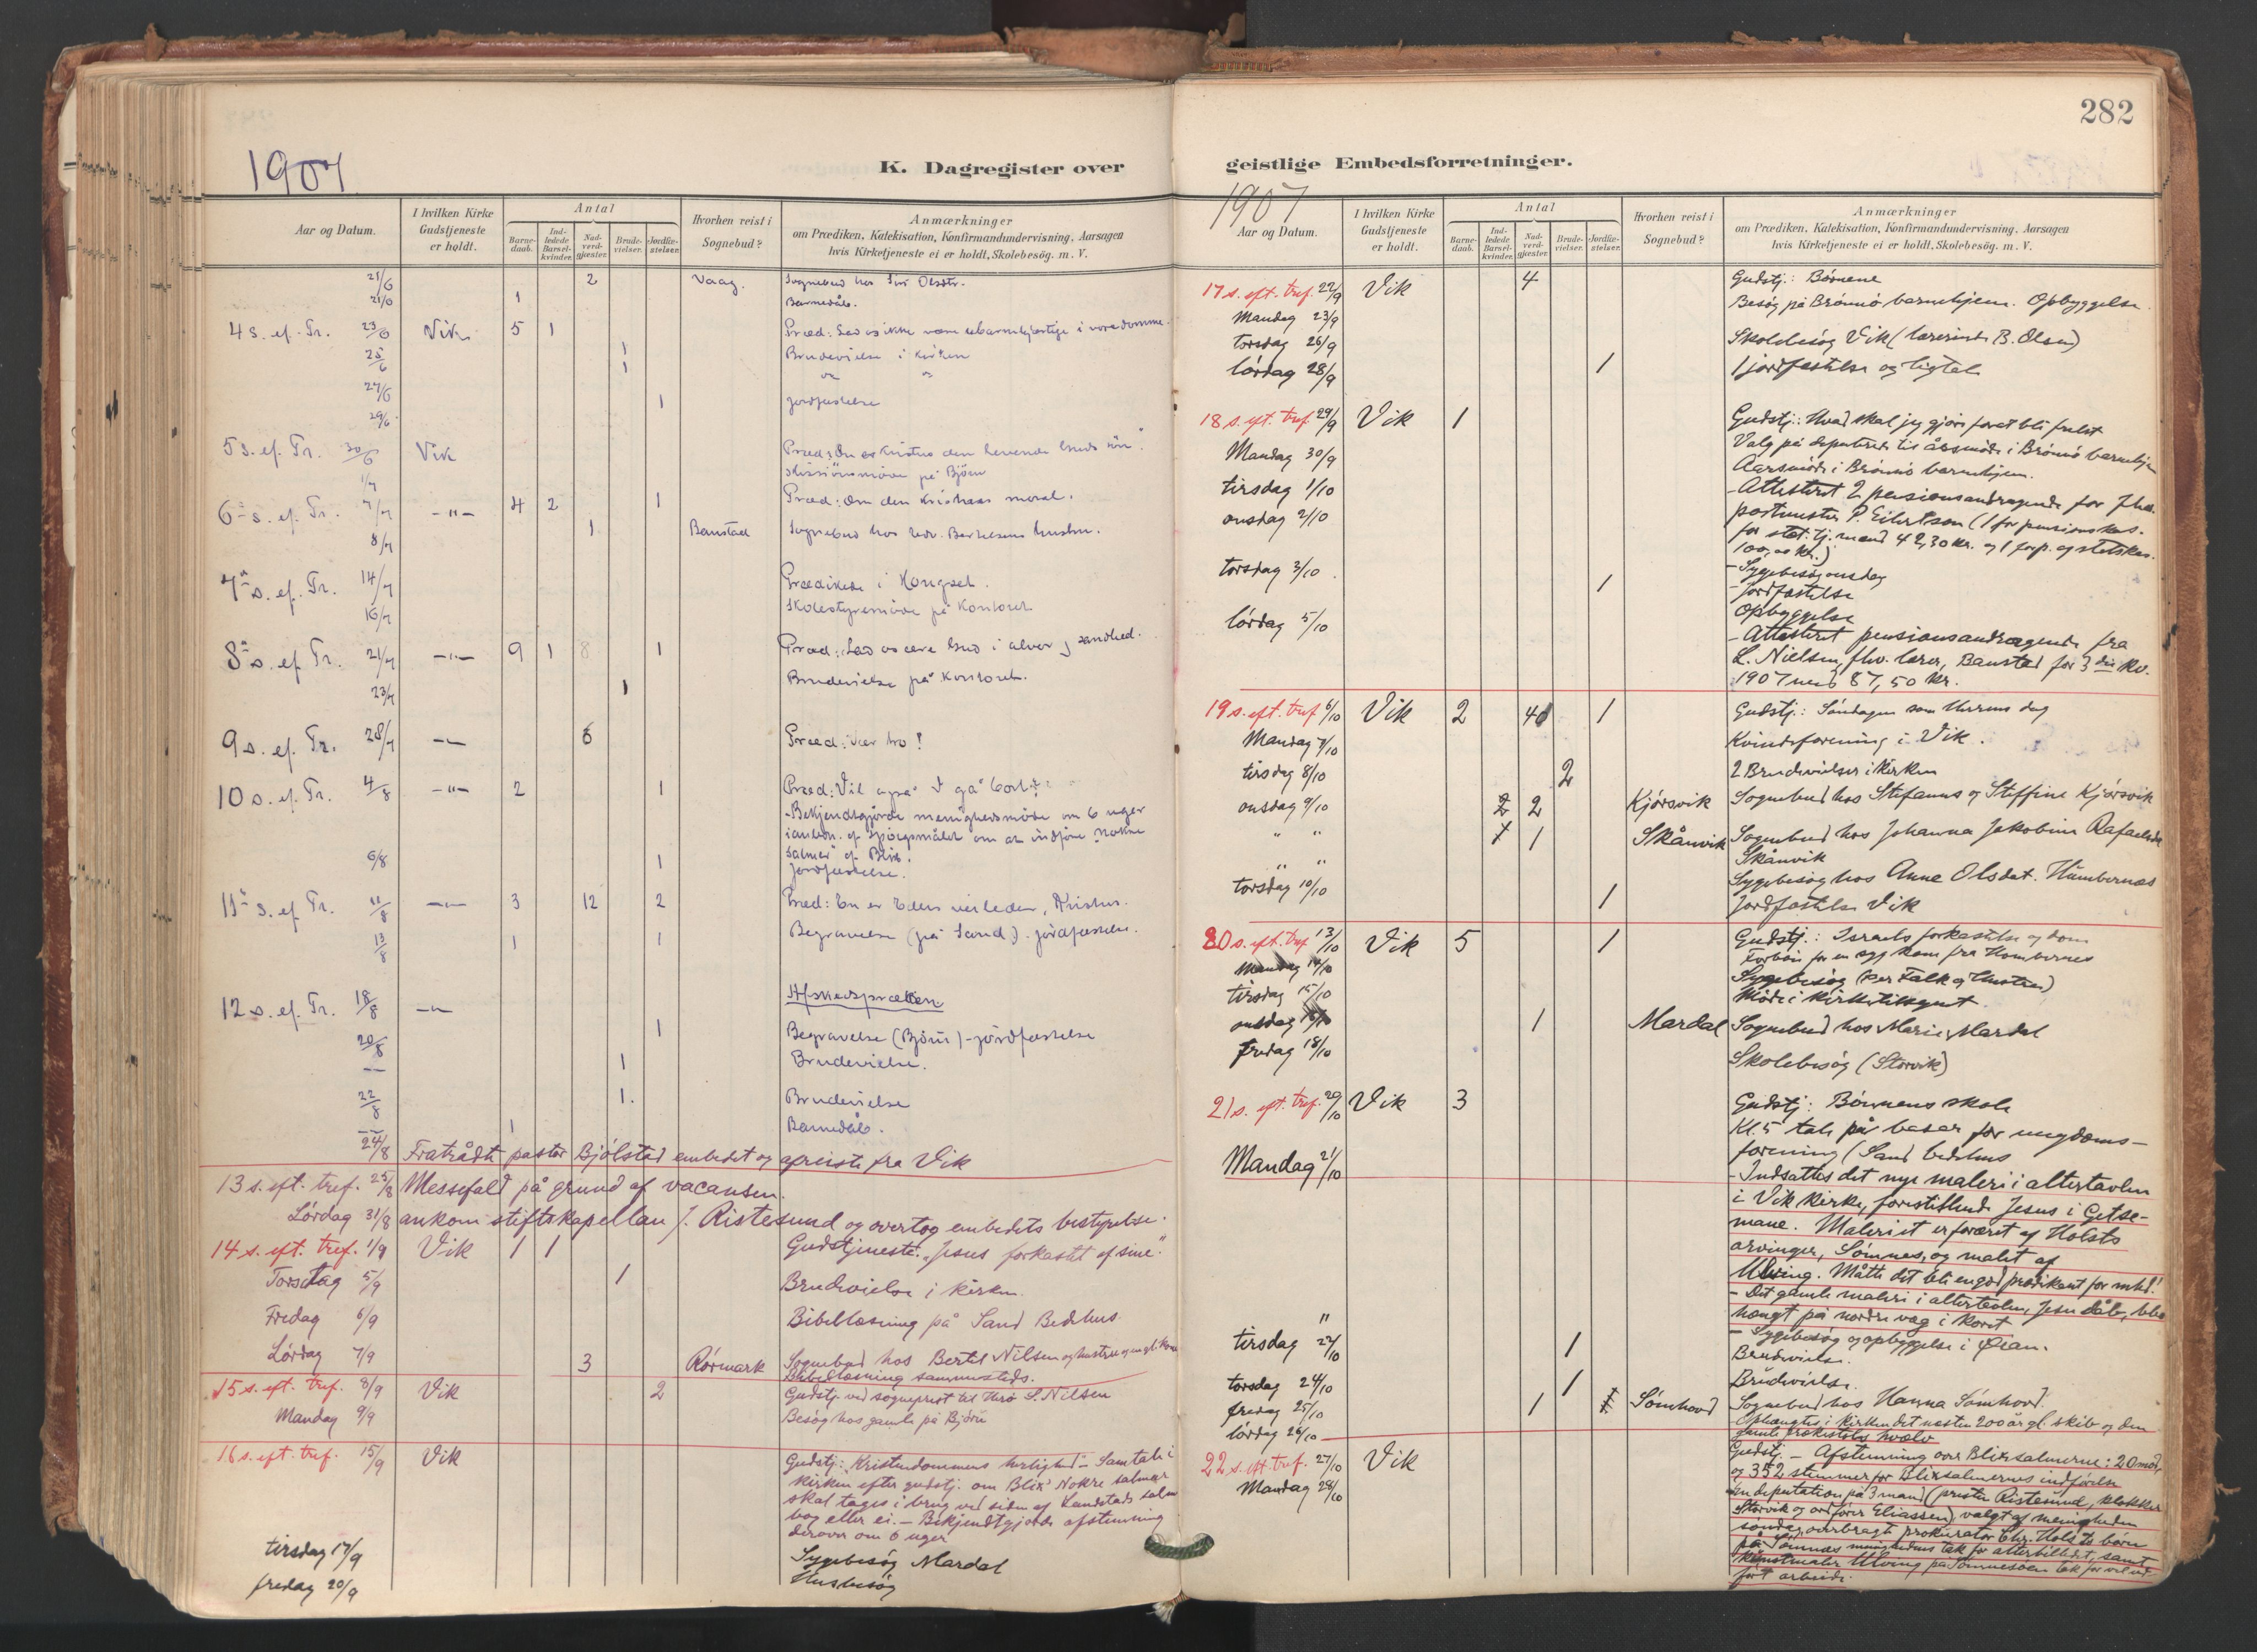 282
K. Dagregister over
1907
Aar og Datum.
I hvilken Kirke Gudstjeneste er holdt.
Antal
Barnedaab.
Indledede Barselkvinder.
Nadverdgjæster.
Brudevielser.
Jordfæstelser.
Hvorhen reist i Sognebud?
Anmærkninger
om Prædiken, Katekisation, Konfirmandundervisning, Aarsagen
hvis Kirketjeneste ei er holdt, Skolebesøg. m. V.
21/6 2 Vaag. Sognebud hos Siri Olsdtr.
21/6 1 Barnedåb.
4 s. ef. Tr. 23/6 Vik 5 1 Præd: Lad os ikke være ubarmhjertige i vore domme.
25/6 1 Brudevielse i kirken
1
27/6 1 Jordfæstelse
29/6
5 s. ef. Tr. 30/6 Vik Præd: Du er Kristus den levende Guds søn.
1/7 Missionsmøde på Bjørn
6 s. ef. Tr. 7/7 -"- 4 2 1 Præd: Om den kristnes moral.
8/7 1 Baustad Sognebud hos Edv. Bertelsens hustru.
7 s. ef. Tr. 14/7 Prædikede i Kongsel.
16/7 Skolestyremøde på kontoret.
8 s. ef. Tr. 21/7 -"- 9 1 8 1 Præd: Lad os ære Gud i alvor og sandhed.
23/7 1 Brudevielse på kontoret.
9 s. ef. Tr. 28/7 -"- 6 Præd: Vær tro!
10 s. ef. Tr. 4/8 -"- 2 1 Præd: Vil også I gå bort?
-Bekjendtgjorde menighedsmøde om 6 uger
i anledn. af spørgsmålet om at indføre "Nokre
salmer" af Blix.
6/8 1 Jordfæstelse.
11 s. ef. Tr. 11/8 -"- 3 12 2 Præd: En er Eders veileder, Kristus.
13/8 1 1 Begravelse (på Sand). Jordfæstelse.
12 s. ef. Tr. 18/8 -"- Afskedspræken
20/8 1 Begravelse (Bjørn) - jordfæstelse
-- 1 Brudevielse.
22/8 1. Brudevielse
-- 1 Barnedåb.
24/8 Fratrådte pastor Bjølstad embedet og afreiste fra Vik
13 s. eft. tref. 25/8 Messefald på grund af vacansen.
Lørdag 31/8 ankom stiftskapellan J. Ristesund og overtog embedets bestyrelse.
14 s. eft. tref. 1/9 Vik 1 1 Gudstjeneste: "Jesus forkastet af sine."
Torsdag 5/9 1 Brudevielse i kirken.
Fredag 6/9 Bibellæsning på Sand Bedehus.
Lørdag 7/9 3 Rørmark Sognebud hos Bertel Nilsen og hustru og en gl. kone
Bibellæsning sammesteds.
15 s. eft. tref. 8/9 Vik 2 Gudstj. ved sogneprest til Herø S. Nilsen
Mandag 9/9 Besøg hos gamle på Bjørn
16 s. eft. tref. 15/9 Vik Gudstj: Kristendommens herlighed - Samtale i
kirken efter gudstj. om Blix' Nokre salmar
skal tages i brug ved siden af Landstads salme
bog eller ei. - Bekjendtgjorde afstemning
derover om 6 uger
tirsdag 17/9 Sygebesøg Mardal
fredag 20/9 Husbesøg
geistlige Embedsforretninger.
1907
Aar og Datum.
I hvilken Kirke Gudstjeneste er holdt.
Antal
Barnedaab.
Indledede Barselkvinder.
Nadverdgjæster.
Brudevielser.
Jordfæstelser.
Hvorhen reist i Sognebud?
Anmærkninger
om Prædiken, Katekisation, Konfirmandundervisning, Aarsagen
hvis Kirketjeneste ei er holdt, Skolebesøg. m. V.
17 s. eft. tref. 22/9 Vik 4 Gudstj.: Børnene
Mandag 23/9 Besøg på Brønnø barnehjem. Opbyggelse.
torsdag 26/9 Skolebesøg Vik (lærerinde B. Olsen)
lørdag 28/9 1 1 jordfæstelse og ligtale
18 s. eft. tref. 29/9 Vik 1 Gudstj.: Hvad skal jeg gjøre for at bli frelst
Valg på deputerede til årsmøde i Brønnø barnehjem
Mandag 30/9 Aarsmøde i Brønnø barnehjem.
tirsdag 1/10 - Attesteret 2 pensionsandragende for fhv.
onsdag 2/10 postmester P. Eilertsen (1 for pensionskas.
for stat. tj. mænd 42,30 kr. og 1 for p. af statskas.
100,00 kr.)
torsdag 3/10 - Sygebesøg onsdag
1 - Jordfæstelse
lørdag 5/10 Opbyggelse
- Attesteret pensionsandragende fra
L. Nielsen, fhv. lærer, Baustad for 3die kv.
1907 med 87,50 kr.
19 s. eft. tref. 6/10 Vik 2 40 1 Gudstj.: Søndagen som Herrens dag
Mandag 7/10 Kvindeforening i Vik.
tirsdag 8/10 2 2 Brudevielser i kirken
onsdag 9/10 2 2 Kjørsvik Sognebud hos Stefanus og Steffine Kjørsvik
" " 1 1 Skånvik Sognebud hos Johanna Jakobine Rafaelsd.
Skånvik
" " Sygebesøg hos Anne Olsdat. Humbernæs
torsdag 10/10 1 Jordfæstelse Vik
20 s. eft. tref. 13/10 Vik 5 1 Gudstj.: Israels forkastelse og dom
Forbøn for en syg kone fra Hombernes
Mandag 14/10 Sygebesøg (Per Falk og Hustru)
tirsdag 15/10 Møde i kirketilsynet.
onsdag 16/10 1 Mardal Sognebud hos Marie Mardal
fredag 18/10 Skolebesøg (Storvik)
21 s. eft. tref. 20/10 Vik 3 Gudstj: Bønnens skole
Kl. 5 tale på basar for ungdoms-
forening (Sand bedehus
Mandag 21/10 - Indsattes det nye maleri i altertavlen
i Vik kirke, forestillende Jesus i Getse-
mane. Maleriet er foræret af Holsts
arvinger, Sømnes, og malet af
Ulving. Måtte det bli en god prædikant for mhd.!
- Det gamle maleri i altertavlen, Jesu dåb, blev
hængt på nordre væg i koret
" - Sygebesøg og opbyggelse i Øian.
tirsdag 22/10 1 Brudevielse.
torsdag 24/10 1 Brudevielse.
fredag 25/10 1 Sømhovd Sognebud hos Hanna Sømhovd.
lørdag 26/10 - Ophængtes i kirken det næsten 200 år gl. skib og den
gamle prækestols hvælv
22 s. eft. tref. 27/10 Vik Gudstj. - Afstemning over Blixsalmerne: 20 mod,
og 352 stemmer for Blixsalmernes indførelse
Mandag 28/10 En deputation på 3 mand (prester Ristesund, klokker
Storvik og ordfører Eliassen) valgt af menigheden
søndag, overbragte prokurator Chr. Holsts børn
på Sømnæs menighedens tak for alterbilledet, samt
kunstmaler Ulving på Sømnesøen tak for vel ud-
ført arbeide.